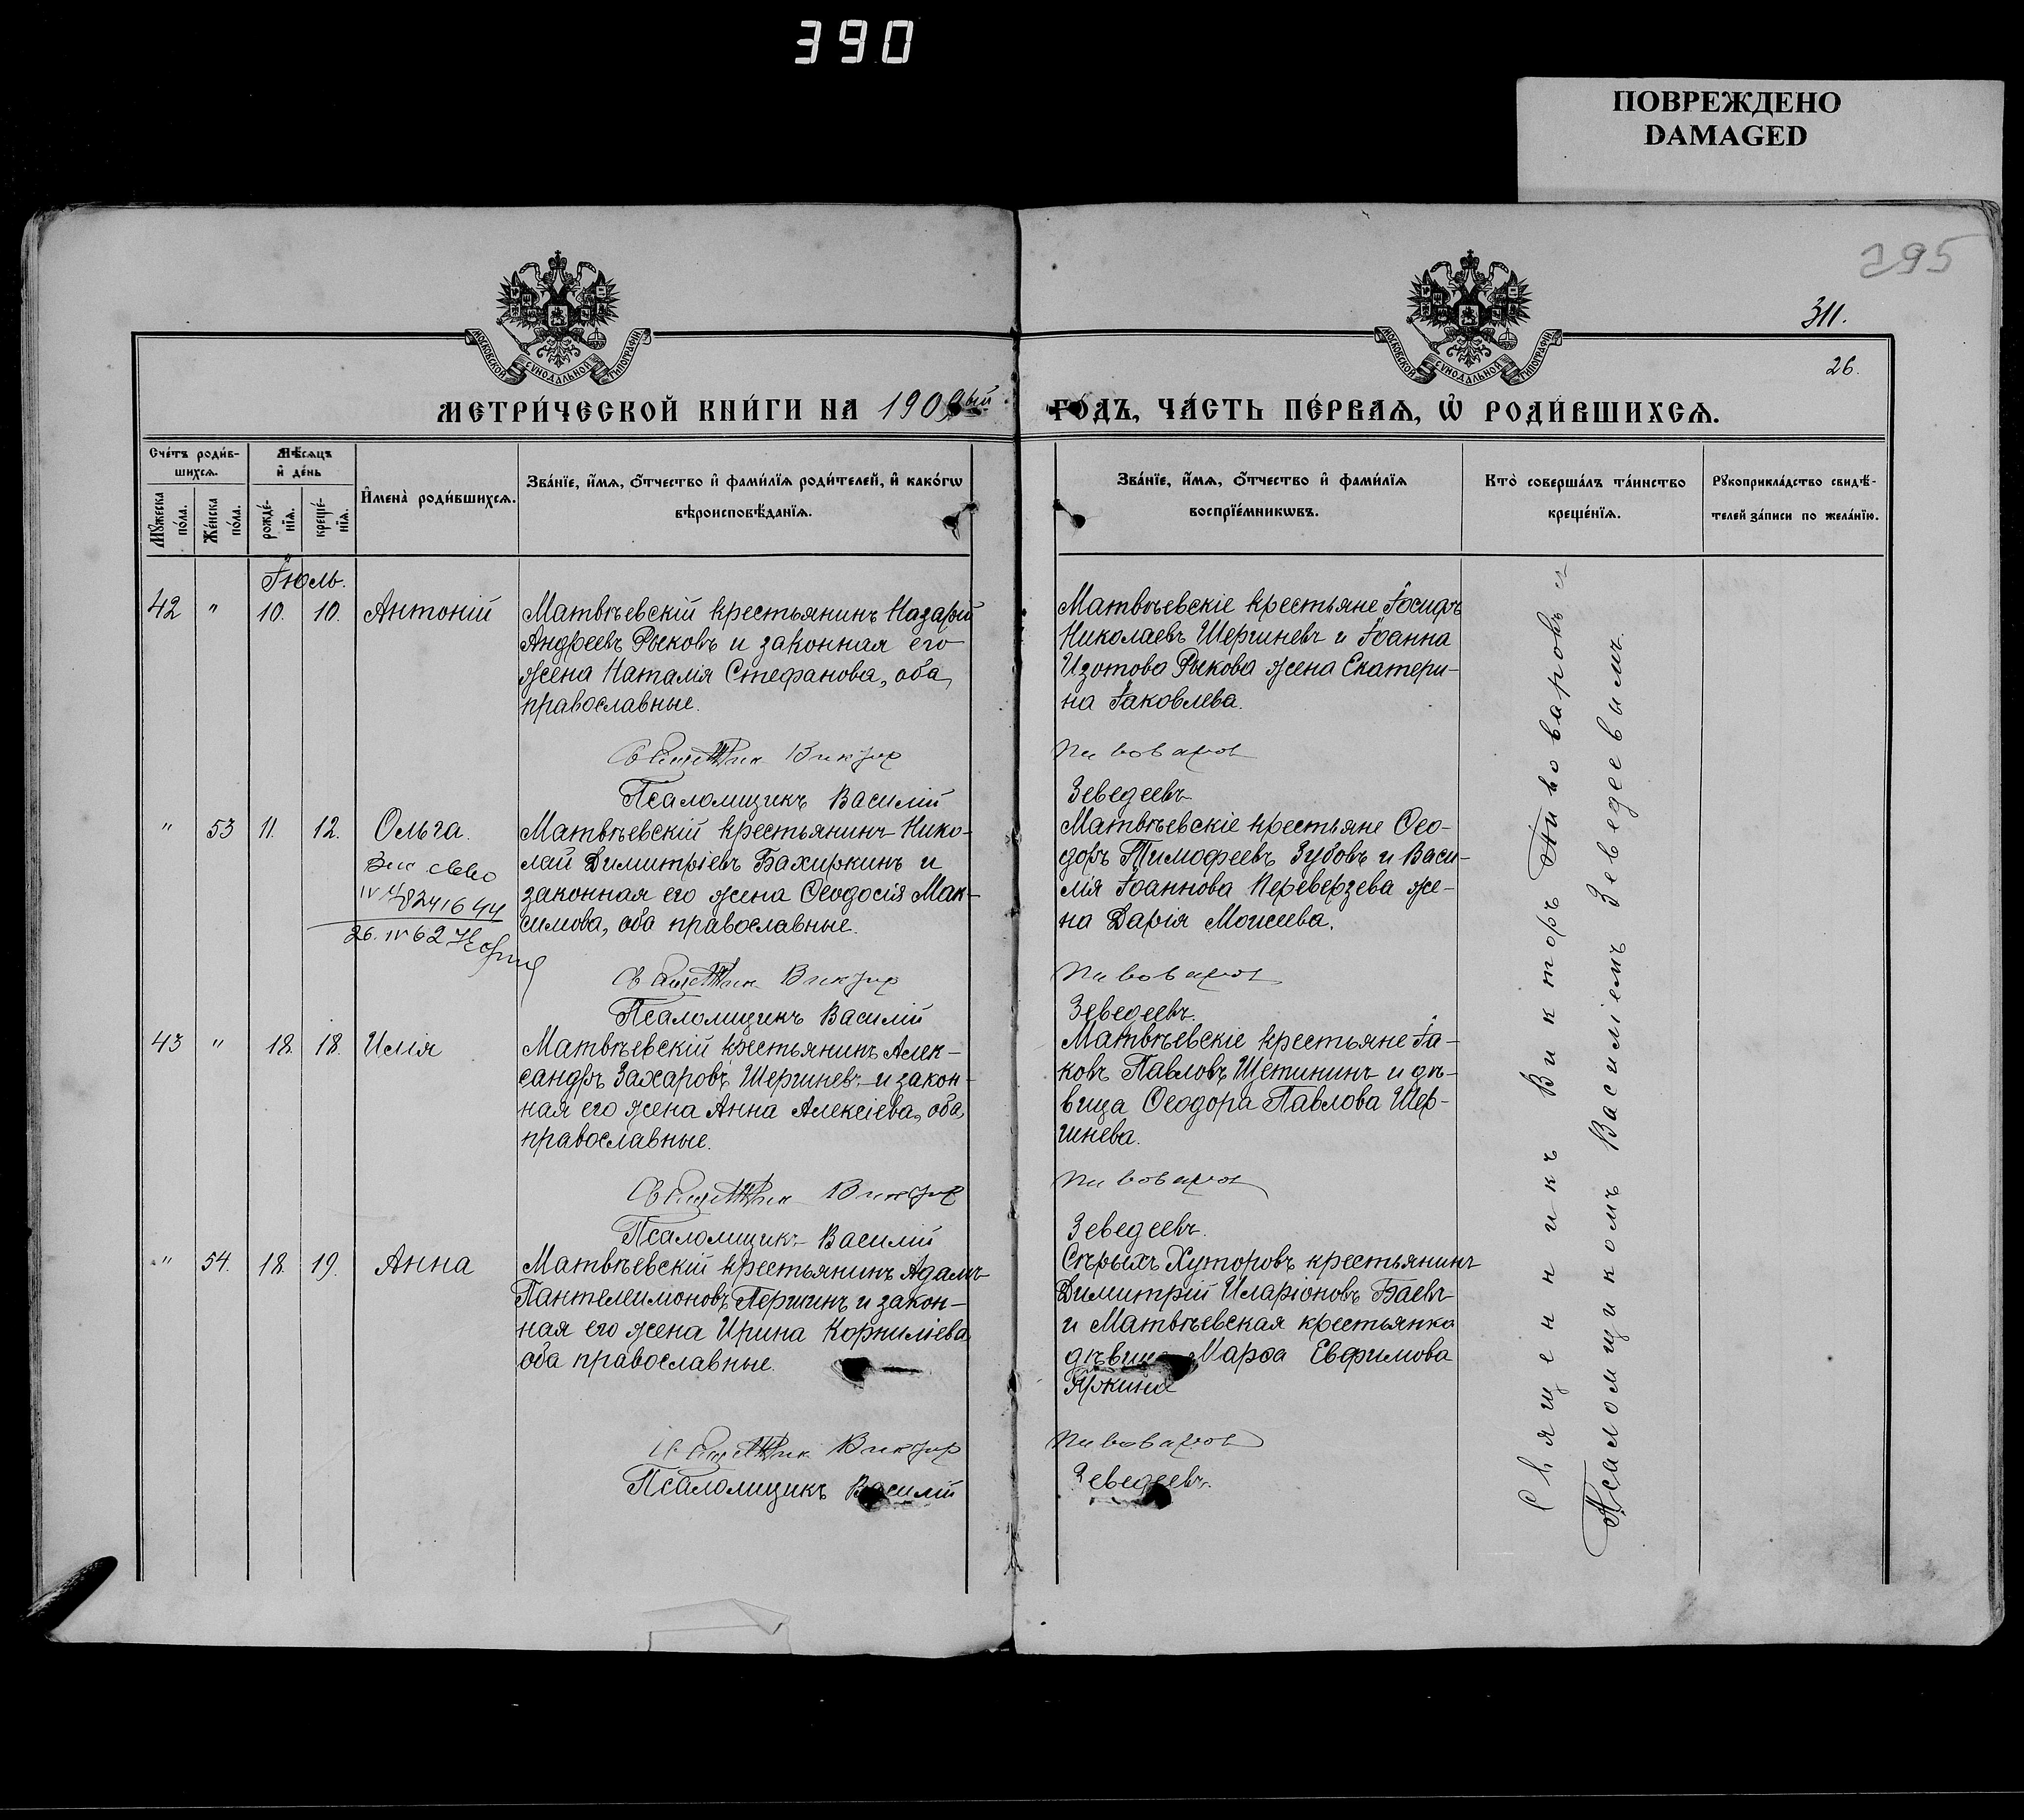 390
ПОВРЕЖДЕНО
DAMAGED
295
311.
26.
МОСКОВСКОЙ СѴНОДАЛЬНОЙ ТИПОГРАФІИ
МОСКОВСКОЙ СѴНОДАЛЬНОЙ ТИПОГРАФІИ
МЕТРИ́ЧЕСКОЙ КНИ́ГИ НА 1909ый
ГОДЪ, ЧА́СТЬ ПЕ́РВАѦ, Ѽ РОДИ́ВШИХСѦ.
Сче́тъ роди́в-
шихсѧ.
Мꙋ́жеска по́ла.
Же́нска по́ла.
Мѣ́сѧцъ
и҆ де́нь
рожде́-
нїѧ.
креще́-
нїѧ.
И҆мена̀ роди́вшихсѧ.
Зва́нїе, и҆́мѧ, ѻ҆́тчество и҆ фами́лїѧ роди́телей, и҆ како́гѡ
вѣроисповѣ́данїѧ.
Зва́нїе, и҆́мѧ, ѻ҆́тчество и҆ фами́лїѧ
воспрїе́мникѡвъ.
Кто̀ соверша́лъ та́инство
креще́нїѧ.
Рꙋкоприкла́дство свидѣ́-
телей за́писи по жела́нїю.
Іюль.
42 " 10. 10. Антоній
Матвѣевскій крестьянинъ Назарій
Андреевъ Рыковъ и законная его
жена Наталія Стефанова, оба
православные.
Священник Виктор
Псаломщикъ Василій
Матвѣевскіе крестьяне Іосифъ
Николаевъ Шершневъ и Іоанна
Изотова Рыкова жена Екатери-
на Іаковлева.
Пивоваров
Зеведеевъ
" 53 11. 12. Ольга.
26. IV 62
Матвѣевскій крестьянинъ Нико-
лай Димитріевъ Бахиркинъ и
законная его жена Ѳеодосія Мак-
симова, оба православные.
Священник Виктор
Псаломщикъ Василій
Матвѣевскіе крестьяне Ѳео-
доръ Тимофеевъ Зубовъ и Васи-
лія Іоаннова Переверзева же-
на Дарія Моисеева.
Пивоваров
Зеведеевъ.
43 " 18. 18. Илія
Матвѣевскій крестьянинъ Алек-
сандръ Захаровъ Шершневъ и закон-
ная его жена Анна Алексіева, оба
православные.
Священник Виктор
Псаломщикъ Василій
Матвѣевскіе крестьяне Іа-
ковъ Павловъ Щетининъ и дѣ-
вица Ѳеодора Павлова Шер-
шнева.
Пивоваров
Зеведеевъ.
" 54. 18. 19. Анна
Матвѣевскій крестьянинъ Адамъ
Пантелеимоновъ Першинъ и закон-
ная его жена Ирина Корниліева
оба православные.
Священник Виктор
Псаломщикъ Василій
Сѣрыхъ Хуторовъ крестьянинъ
Димитрій Иларіоновъ Баевъ
и Матвѣевская крестьянка
дѣвица Марѳа Евфимова
Пивоваров
Зеведеевъ.
Священникъ Викторъ Пивоваровъ съ
Псаломщикомъ Василіемъ Зеведеевымъ.